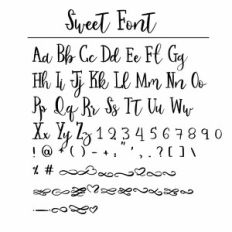 Sweet Font
Aa Bb Cc Dd Ee Ff Gg
Hh Ii Jj Kk Ll Mm Nn Oo
Pp Qq Rr Ss Tt Uu Ww
Xx Yy Zz 1 2 3 4 5 6 7 8 9 0
! @ * ( ) - + : " ' , . ? [ ] \
% #